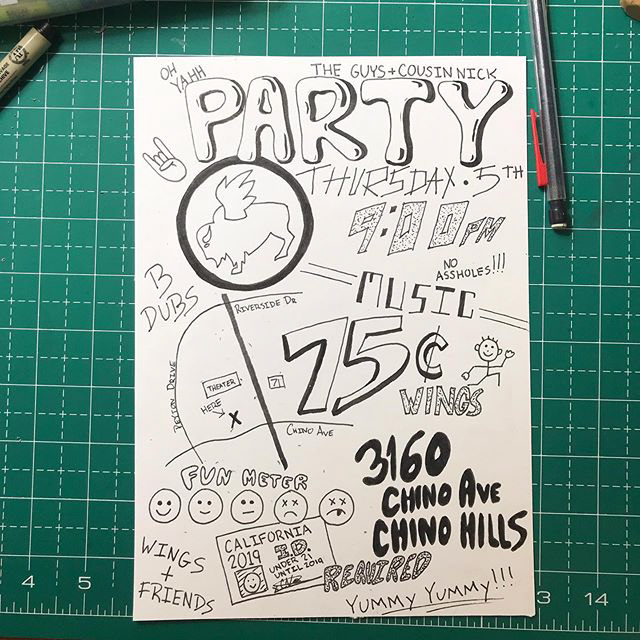 OH
YAHH
THE GUYS + COUSIN NICK
PARTY
THURSDAY · 5TH
9:00PM
NO
ASSHOLES!!!
B
DUBS
MUSIC
RIVERSIDE DR
PEYTON DRIVE
75¢
WINGS
THEATER
71
HERE
X
CHINO AVE
3160
CHINO AVE
CHINO HILLS
FUN METER
CALIFORNIA
2019 I.D.
UNDER 21
UNTIL 2019
REQUIRED
WINGS
+
FRIENDS
YUMMY YUMMY!!!
4
5
13
14